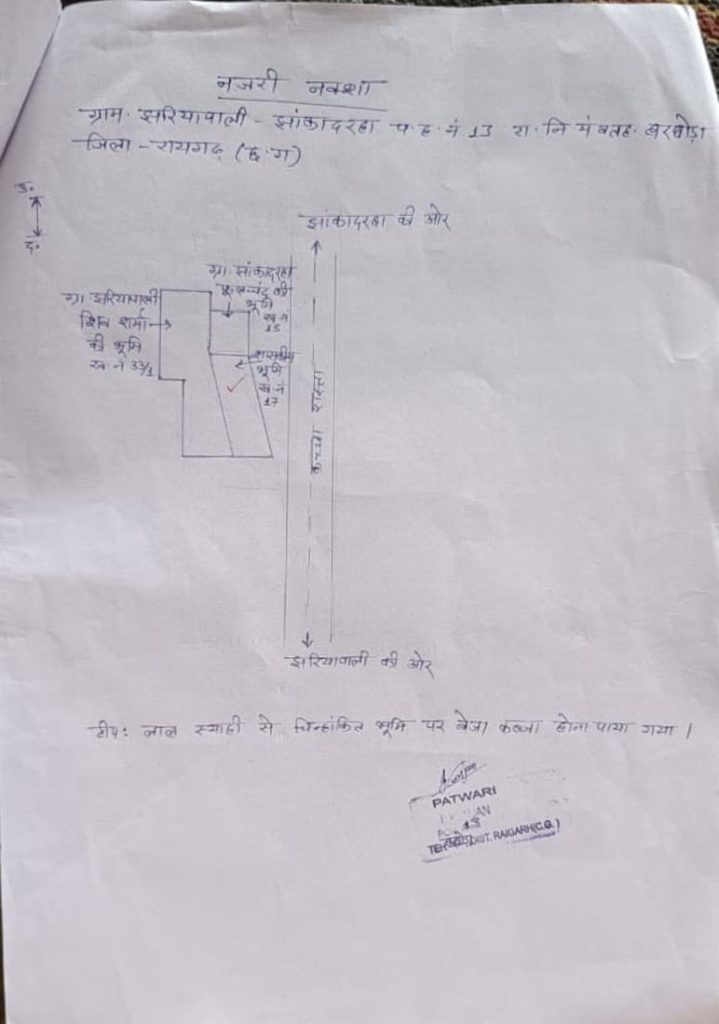 नजरी नक्शा
ग्राम. झरियापाली - झांकादरहा प.ह.नं 13 रा.नि मं व तह. खरसिया
जिला - रायगढ़ (छ.ग)
उ.
द.
झांकादरहा की ओर
ग्रा. झांकादरहा
की
भूमि
ख.नं
15
ग्रा. झरियापाली
शिव शर्मा
की भूमि
ख.नं 33/1
शासकीय
भूमि
ख.नं
17
कच्चा रास्ता
झरियापाली की ओर
टीप: लाल स्याही से चिन्हांकित भूमि पर बेजा कब्जा होना पाया गया ।
PATWARI
13
DIST. RAIGARH(C.G.)